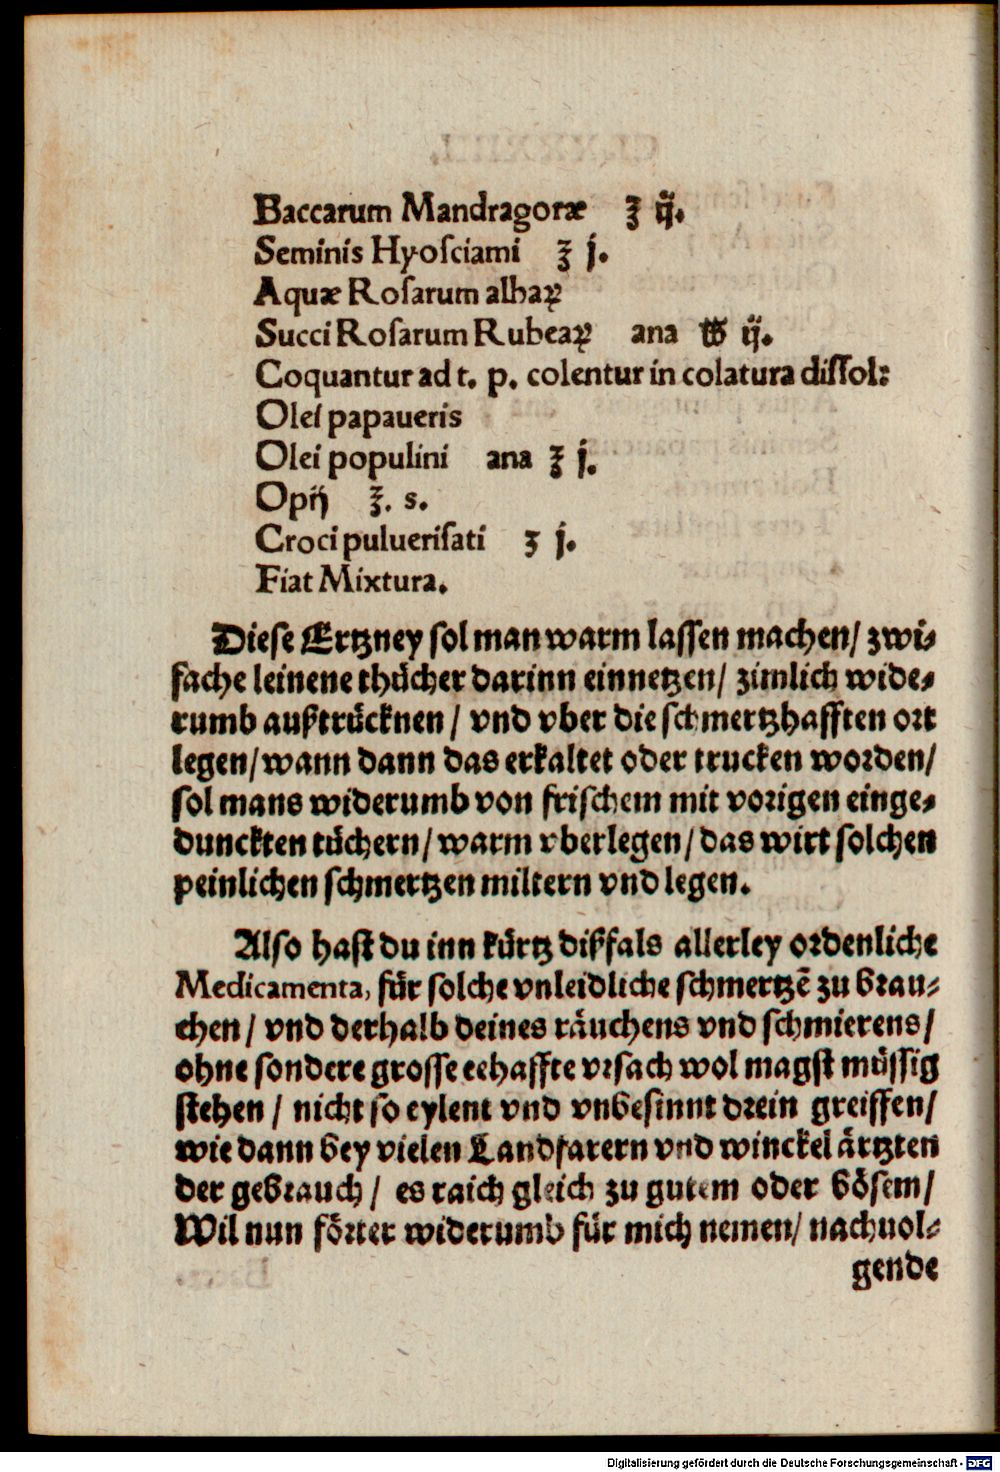 Baccarum Mandragoræ ℥ ij.
Seminis Hyoſciami ℥ j.
Aquæ Roſarum albaꝝ
Succi Roſarum Rubeaꝝ ana ℔ ij.
Coquantur ad t. p. colentur in colatura diſſol:
Olei papaueris
Olei populini ana ℥ j.
Opij ℥. s.
Croci pulueriſati ʒ j.
Fiat Mixtura.
Dieſe Ertzney ſol man warm laſſen machen/ zwi-
fache leinene thuͤcher darinn einnetzen/ zimlich wide-
rumb außtruͤcknen/ vnd vber die ſchmertzhafften ort
legen/ wann dann das erkaltet oder trucken worden/
ſol mans widerumb von friſchem mit vorigen einge-
dunckten tuͤchern/ warm vberlegen/ das wirt ſolchen
peinlichen ſchmertzen miltern vnd legen.
Alſo haſt du inn kuͤrtz dißfals allerley ordenliche
Medicamenta, fuͤr ſolche vnleidliche ſchmertzē zu brau-
chen/ vnd derhalb deines raͤuchens vnd ſchmierens/
ohne ſondere groſſe eehaffte vrſach wol magſt muͤſſig
ſtehen/ nicht ſo eylent vnd vnbeſinnt drein greiffen/
wie dann bey vielen Landfarern vnd winckel aͤrtzten
der gebrauch/ es raich gleich zu gutem oder boͤſem/
Wil nun foͤrter widerumb fuͤr mich nemen/ nachuol-
gende
Digitalisierung gefördert durch die Deutsche Forschungsgemeinschaft - DFG